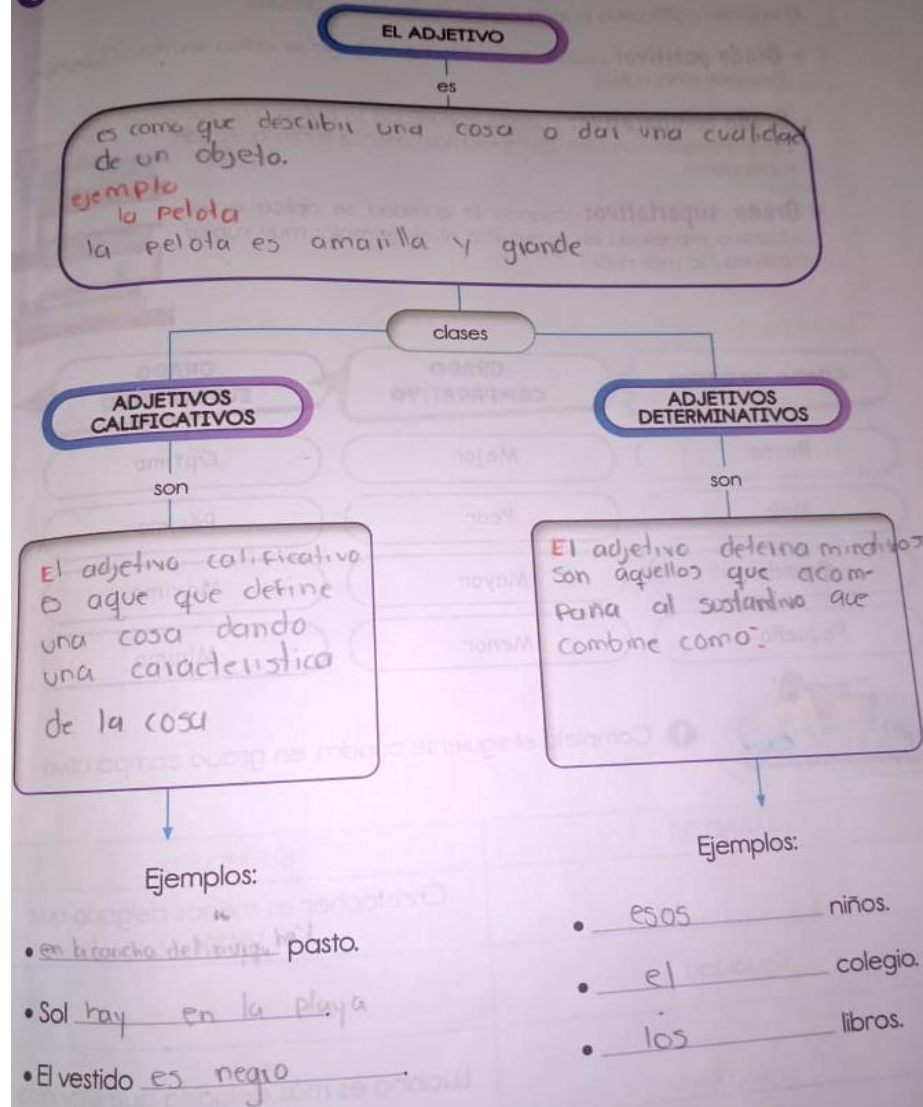 EL ADJETIVO
es
es como que describir una cosa o dar una cualidad
de un objeto.
ejemplo
la pelota
la pelota es amarilla y grande
clases
ADJETIVOS
CALIFICATIVOS
son
El adjetivo calificativo
es aque que define
una cosa dando
una caracteristica
de la cosa
Ejemplos:
en la cancha del hay pasto.
Sol hay en la playa.
El vestido es negro.
ADJETIVOS
DETERMINATIVOS
son
El adjetivo minativos
son aquellos que acom-
paña al sustantivo que
combine como:
Ejemplos:
esos niños.
el colegio.
los libros.